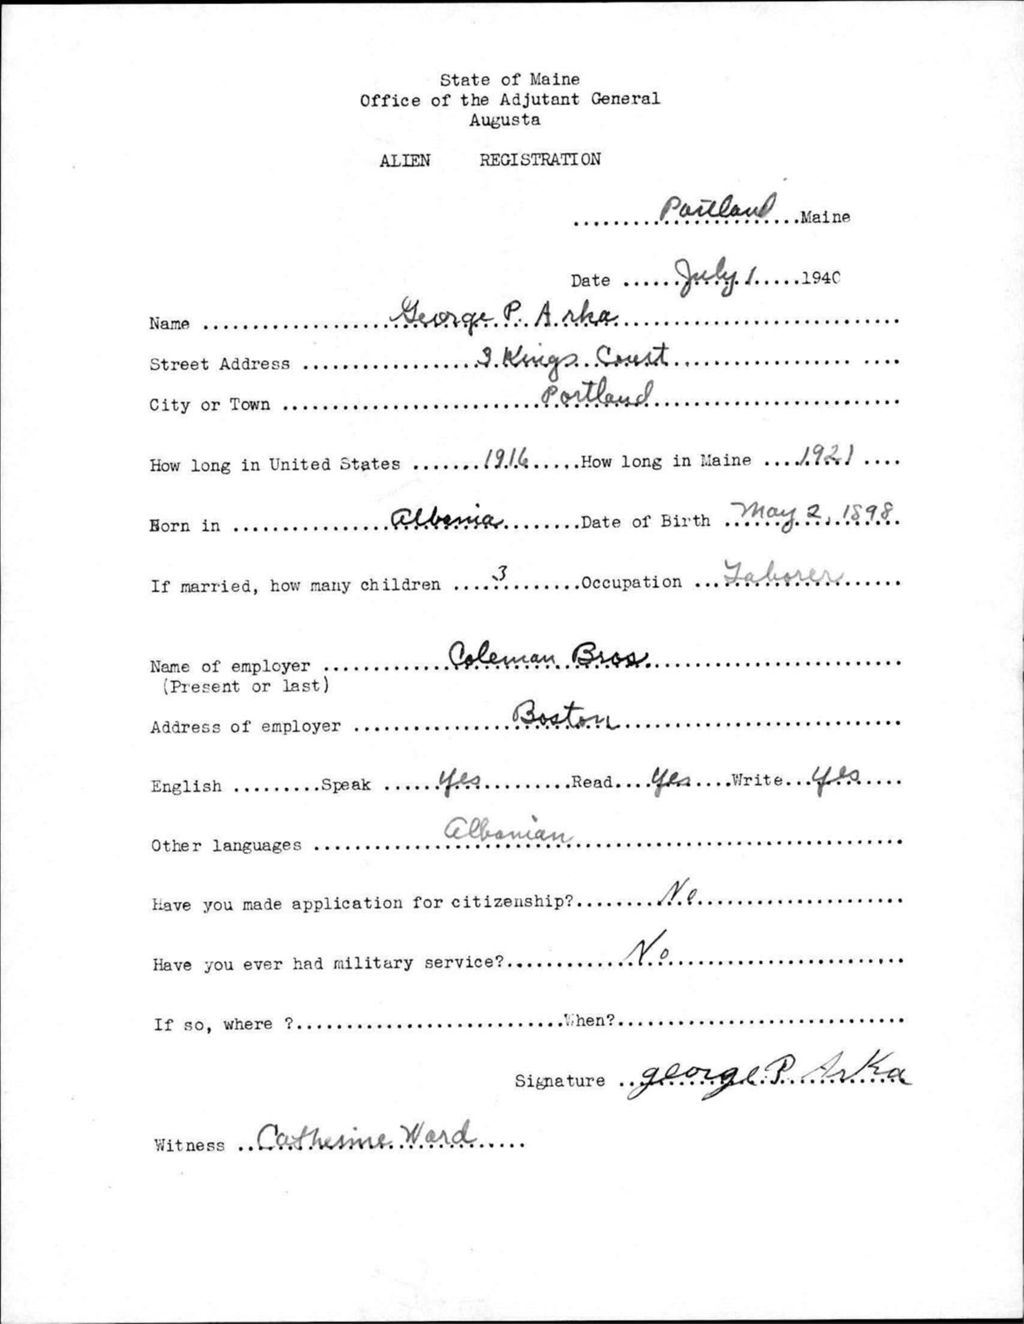 State of Maine
Office of the Adjutant General
Augusta
ALIEN REGISTRATION
.........Portland...Maine
Date ......July 1.....1940
Name ..................George P. Arka............................
Street Address .................3 Kings Court...................... ....
City or Town .........................Portland.........................
How long in United States .......1916.....How long in Maine ....1921 ....
Born in ................Albania........Date of Birth ..May 2, 1898.
If married, how many children ....3........Occupation ...Laborer......
Name of employer .............Coleman Bros.........................
(Present or last)
Address of employer ................Boston............................
English .........Speak ......yes..........Read....yes....Write...yes....
Other languages .............Albanian.................................
Have you made application for citizenship?........No.....................
Have you ever had military service?............No........................
If so, where ?...........................When?............................
Signature ..george P. ArKa
Witness ..Catherine Ward.....